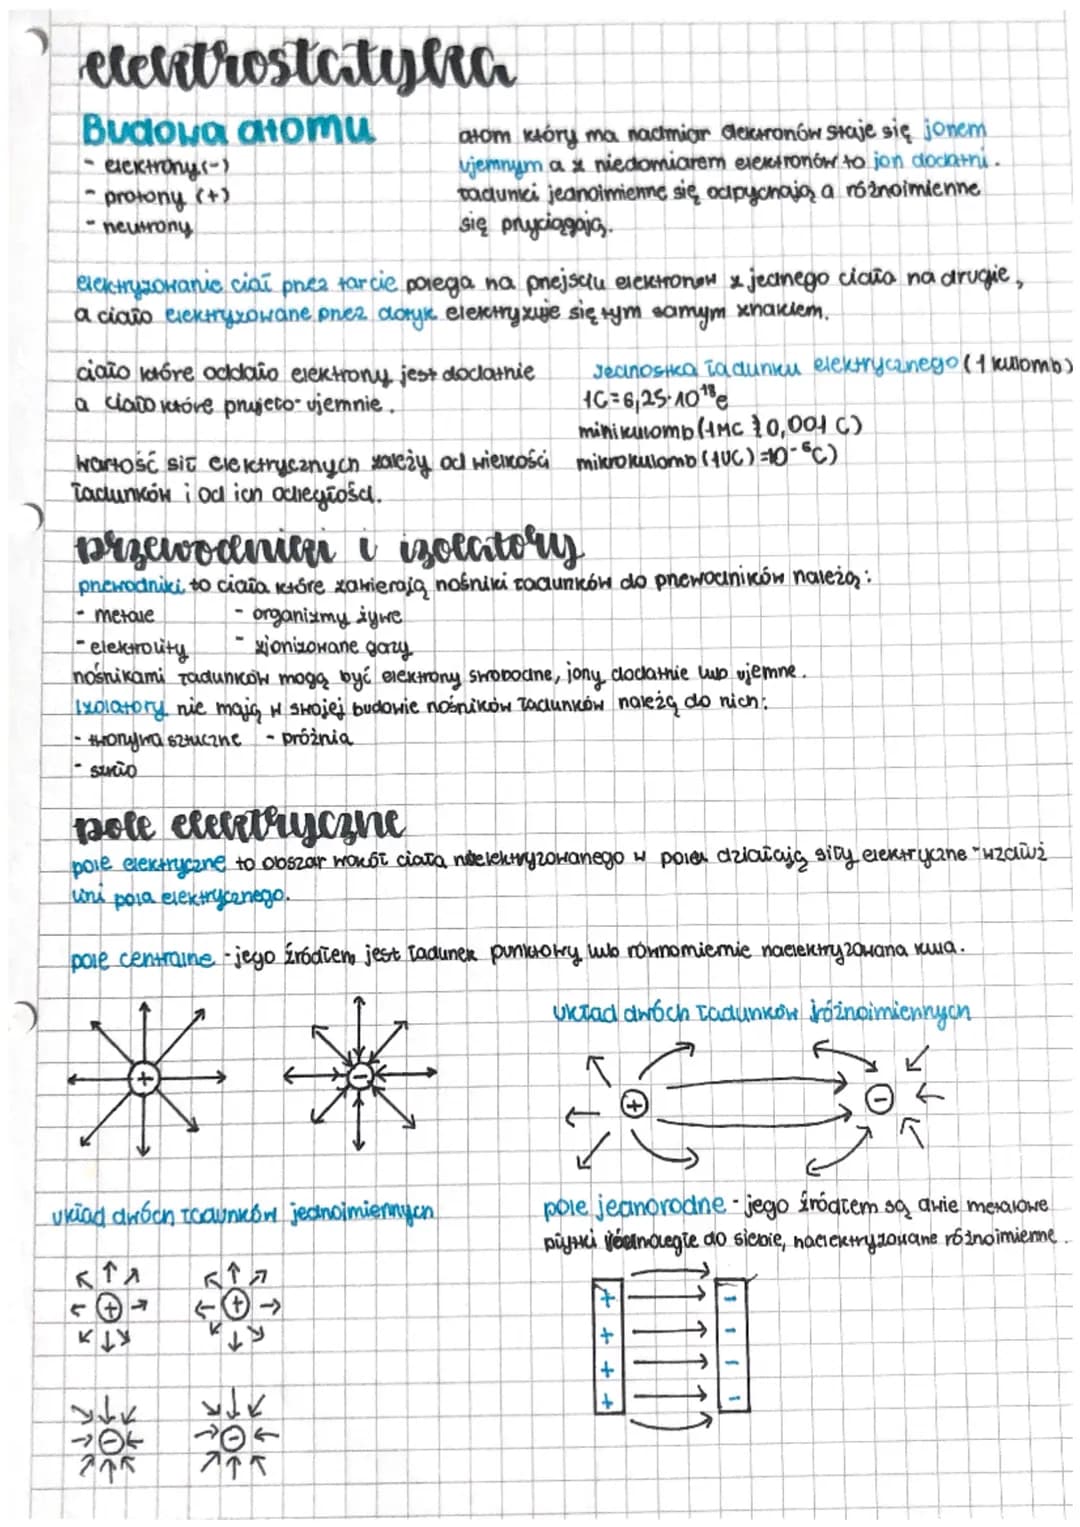 elektrostatyka
Budowa atomu
- elektrony (-)
- protony (+)
- neutrony
atom który ma nadmiar elektronów staje się jonem
ujemnym a z niedomiarem elektronów to jon dodatni.
ładunki jednoimienne się odpychają a różnoimienne
się przyciągają.
elektryzowanie ciał przez tarcie polega na przejściu elektronów z jednego ciała na drugie,
a ciało elektryzowane przez dotyk elektryzuje się tym samym znakiem.
ciało które oddało elektrony jest dodatnie
a ciało które przyjęło - ujemnie.
Jednostka ładunku elektrycznego (1 kulomb)
1C = 6,25·10¹⁸e
minikulomb (1MC = 0,001 C)
mikrokulomb (1UC) = 10⁻⁶C)
wartość sił elektrycznych zależy od wielkości
ładunków i od ich odległości.
przewodniki i izolatory
przewodniki to ciała które zawierają nośniki ładunków do przewodników należą:
- metale - organizmy żywe
- elektrolity - zjonizowane gazy
nośnikami ładunków mogą być elektrony swobodne, jony dodatnie lub ujemne.
Izolatory nie mają w swojej budowie nośników ładunków należą do nich:
- tworzywa sztuczne - próżnia
- szkło
pole elektryczne
pole elektryczne to obszar wokół ciała naelektryzowanego w polu działają siły elektryczne - wzdłuż
lini pola elektrycznego.
pole centralne - jego źródłem jest ładunek punktowy lub równomiernie naelektryzowana kula.
+ -
układ dwóch ładunków różnoimiennych
+ -
układ dwóch ładunków jednoimiennych
+ +
- -
pole jednorodne - jego źródłem są dwie metalowe
płytki równoległe do siebie, naelektryzowane różnoimienne.
+ -
+ -
+ -
+ -